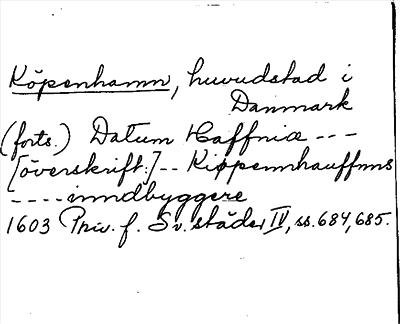 Köpenhamn, huvudstad i
Danmark
(forts.) Datum Haffniæ ---
[överskrift:] -- Kiøpennhauffnns
---- inndbyggere
1603 Priv. f. Sv. städer IV, ss. 684, 685.